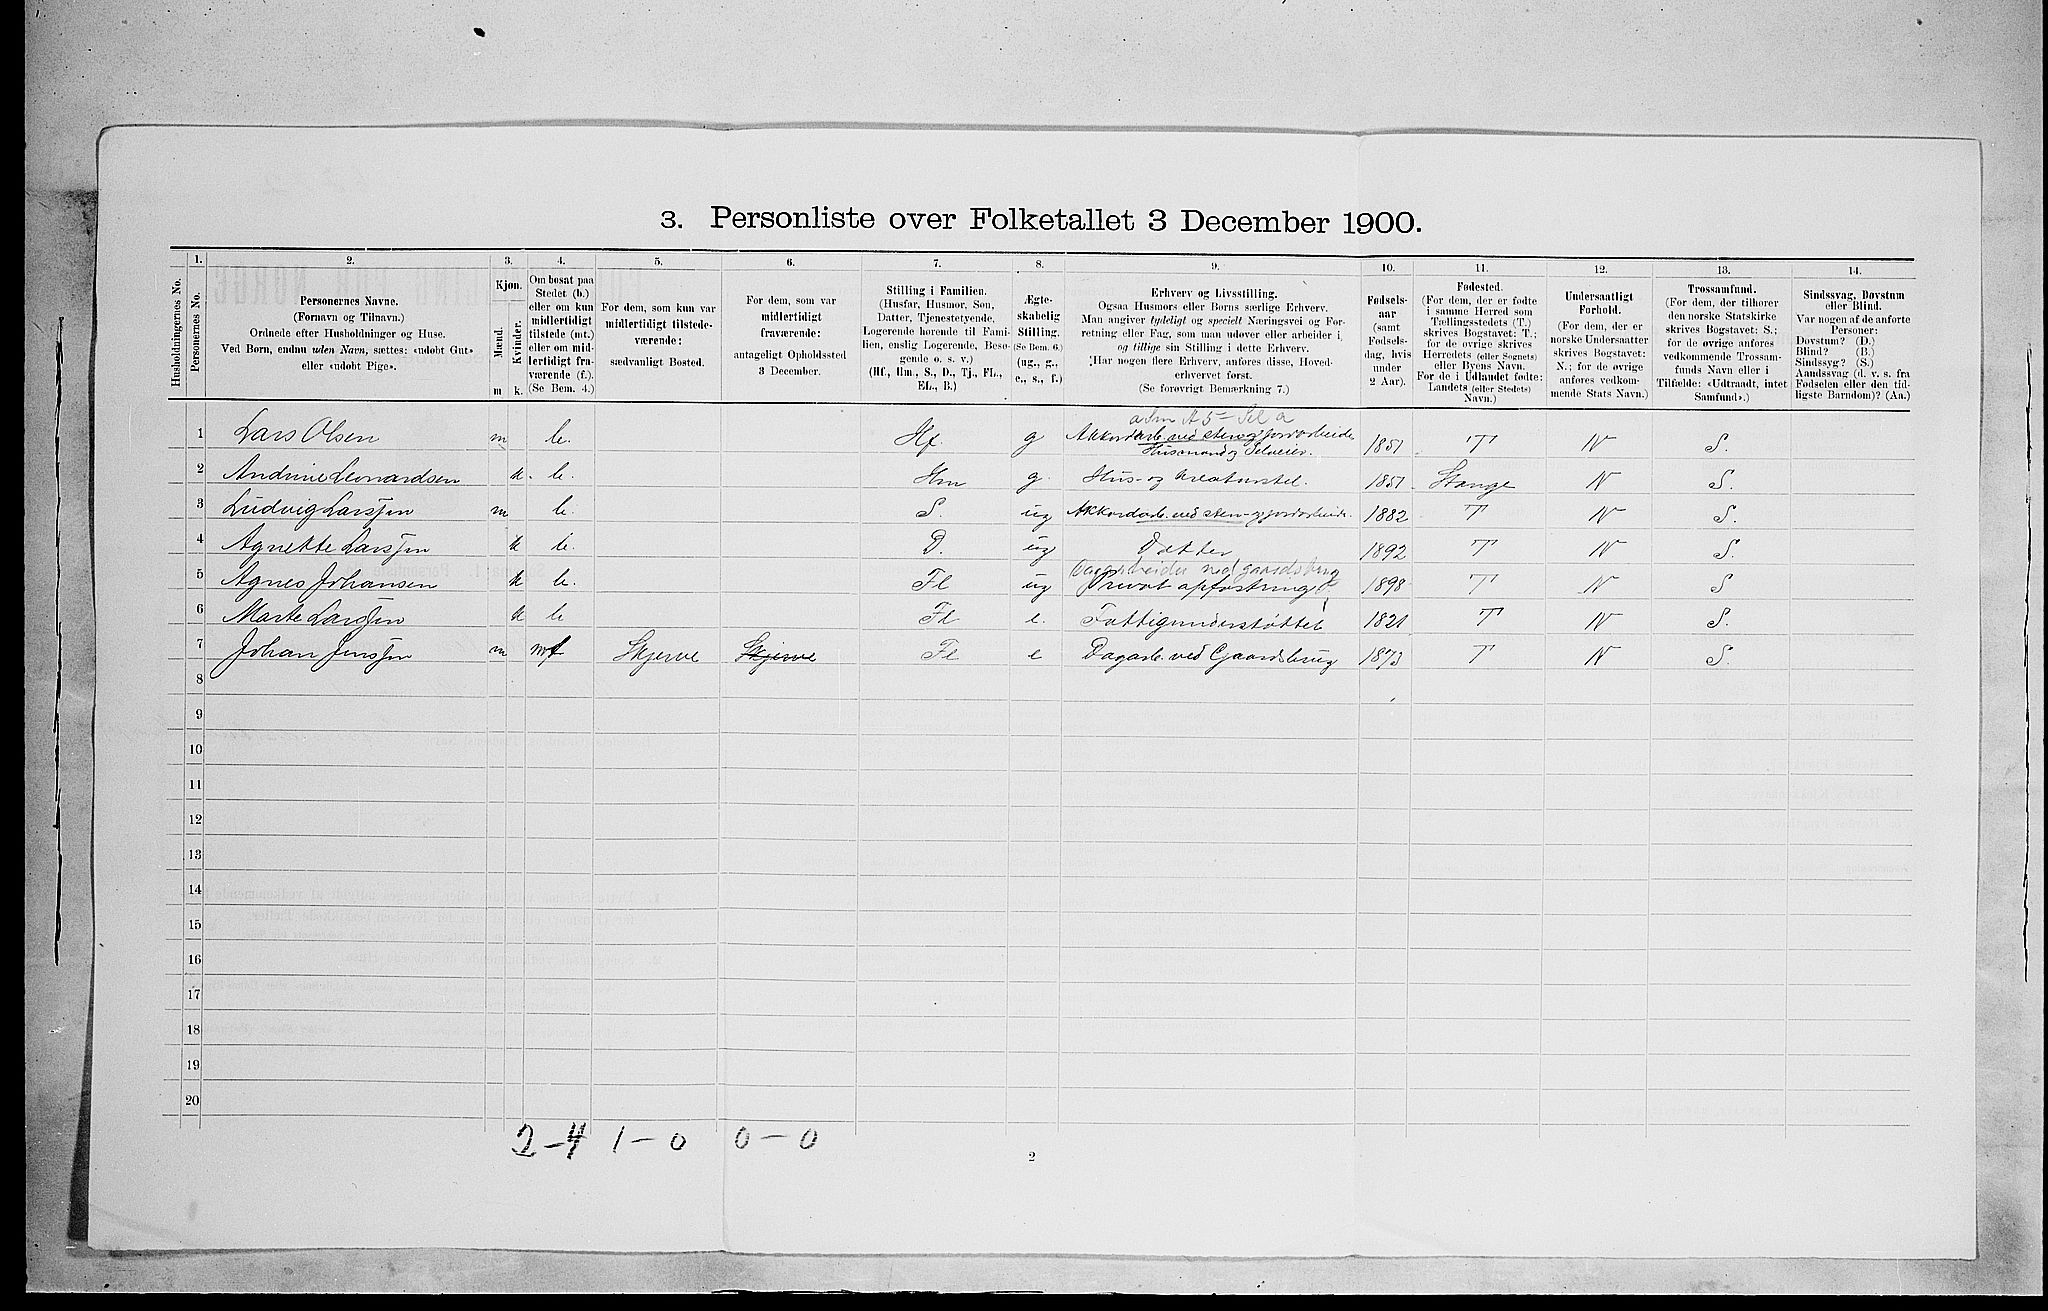 3. Personliste over Folketallet 3 December 1900.
Husholdningernes No.
1. Personernes No.
2. Personernes Navne.
(Fornavn og Tilnavn.)
Ordnede efter Husholdninger og Huse.
Ved Børn, endnu uden Navn, sættes: «udøbt Gut»
eller «udøbt Pige».
3. Kjøn.
Mænd. Kvinder.
m k.
4. Om bosat paa
Stedet (b.)
eller om kun
midlertidigt
tilstede (mt.)
eller om mid-
lertidigt fra-
værende (f.).
(Se Bem. 4.)
5. For dem, som kun var
midlertidigt tilstede-
værende:
sædvanligt Bosted.
6. For dem, som var
midlertidigt
fraværende:
antageligt Opholdssted
3 December.
7. Stilling i Familien.
(Husfar, Husmor, Søn,
Datter, Tjenestetyende,
Logerende hørende til Fami-
lien, enslig Logerende, Besø-
gende o. s. v.)
(Hf., Hm., S., D., Tj., FL.,
EL., B.)
8. Ægte-
skabelig
Stilling.
(Se Bem. 6.)
(ug., g.,
e., s., f.)
9. Erhverv og Livsstilling.
Ogsaa Husmors eller Børns særlige Erhverv.
Man angiver tydeligt og specielt Næringsvei og For-
retning eller Fag, som man udøver eller arbeider i,
og tillige sin Stilling i dette Erhverv.
Har nogen flere Erhverv, anføres disse, Hoved-
erhvervet først.
(Se forøvrigt Bemærkning 7.)
10. Fødsels-
aar
(samt
Fødsels-
dag, hvis
under
2 Aar).
11. Fødested.
(For dem, der er fødte
i samme Herred som
Tællingsstedets (T.)
skrives Bogstavet: T.;
for de øvrige skrives
Herredets (eller Sognets)
eller Byens Navn.
For de i Udlandet fødte:
Landets (eller Stedets)
Navn.)
12. Undersaatligt
Forhold.
(For dem, der er
norske Undersaatter
skrives Bogstavet:
N.; for de øvrige
anføres vedkom-
mende Stats Navn.)
13. Trossamfund.
(For dem, der tilhører
den norske Statskirke
skrives Bogstavet: S.;
for de øvrige anføres
vedkommende Trossam-
funds Navn eller i
Tilfælde: «Udtraadt, intet
Samfund».)
14. Sindssvag, Døvstum
eller Blind.
Var nogen af de anførte
Personer:
Døvstum? (D.)
Blind? (B.)
Sindssyg? (S.)
Aandssvag (d. v. s. fra
Fødselen eller den tid-
ligste Barndom)? (Aa.)
1 Lars Olsen m b. Hf. g Akkordarb. ved sten og jordarbeide 1851 T N S.
Husmand og Selveier.
2 Andrine Leonardsen k. b. Hm g. Hus- og kreaturstel. 1851 Stange N S.
3 Ludvig Larssen m b. S. ug Akkordarb. ved sten- og jordarbeide. 1882 T N S.
4 Agnette Larssen k b. D. ug Datter 1892 T N S.
5 Agnes Johansen k b. Fl ug Privat opfostring 1898 T N S
6 Marte Larssen k b Fl e. Fattigunderstøttet 1821 T N S.
7 Johan Jenssen m mt Skjerve Skjerve Fl e Dagarb. ved Gaardsbrug 1873 T N S.
8
9
10
11
12
13
14
15
16
17
18
19
20
2-4 1-0 0-0
2